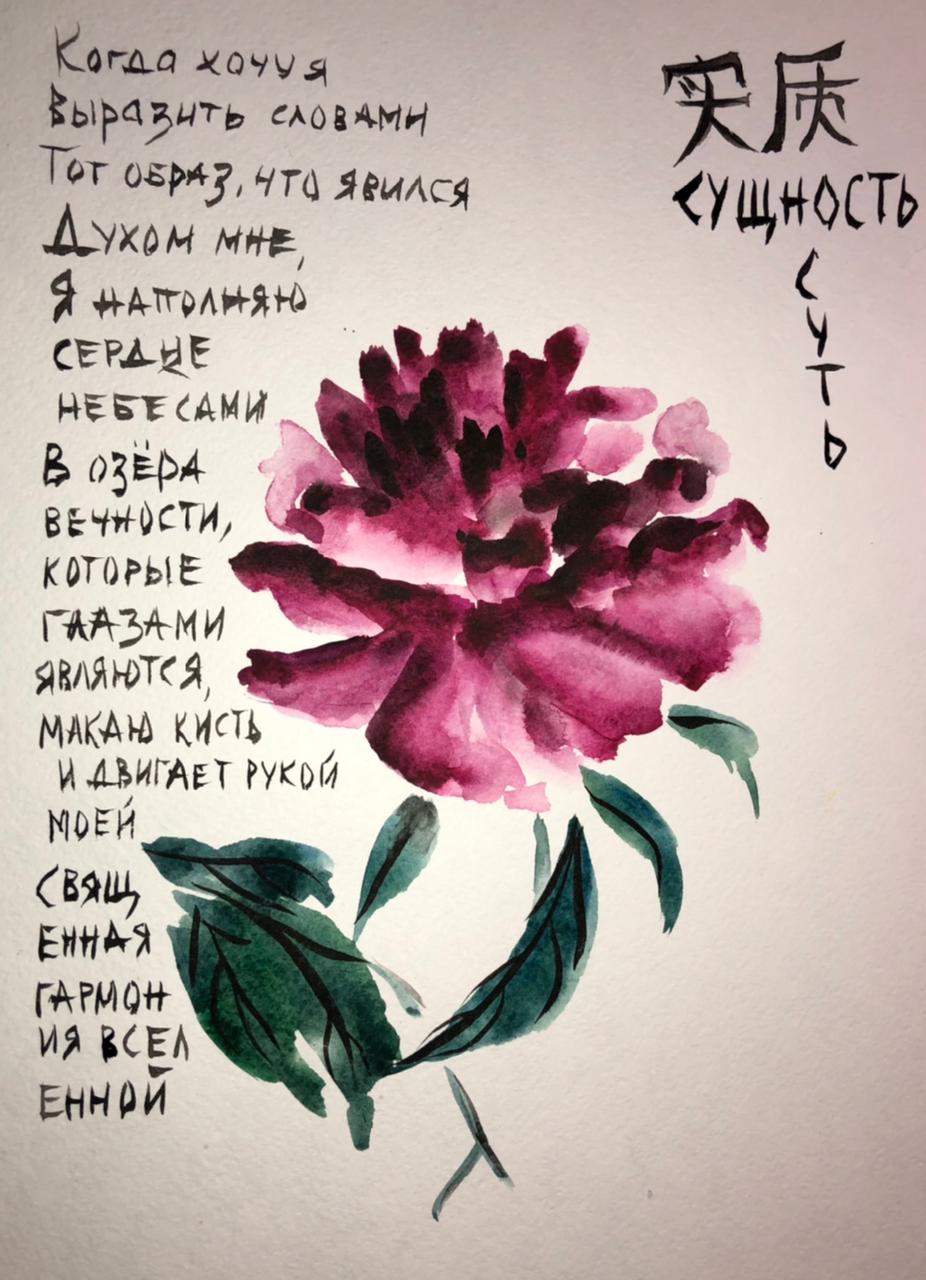 Когда хочу я
Выразить словами
Тот образ, что явился
Духом мне,
Я наполняю
сердце
небесами
В озёра
вечности,
которые
глазами
являются,
макаю кисть
и двигает рукой
моей
свящ
енная
гармон
ия всел
енной
实质
сущность
с
у
т
ь